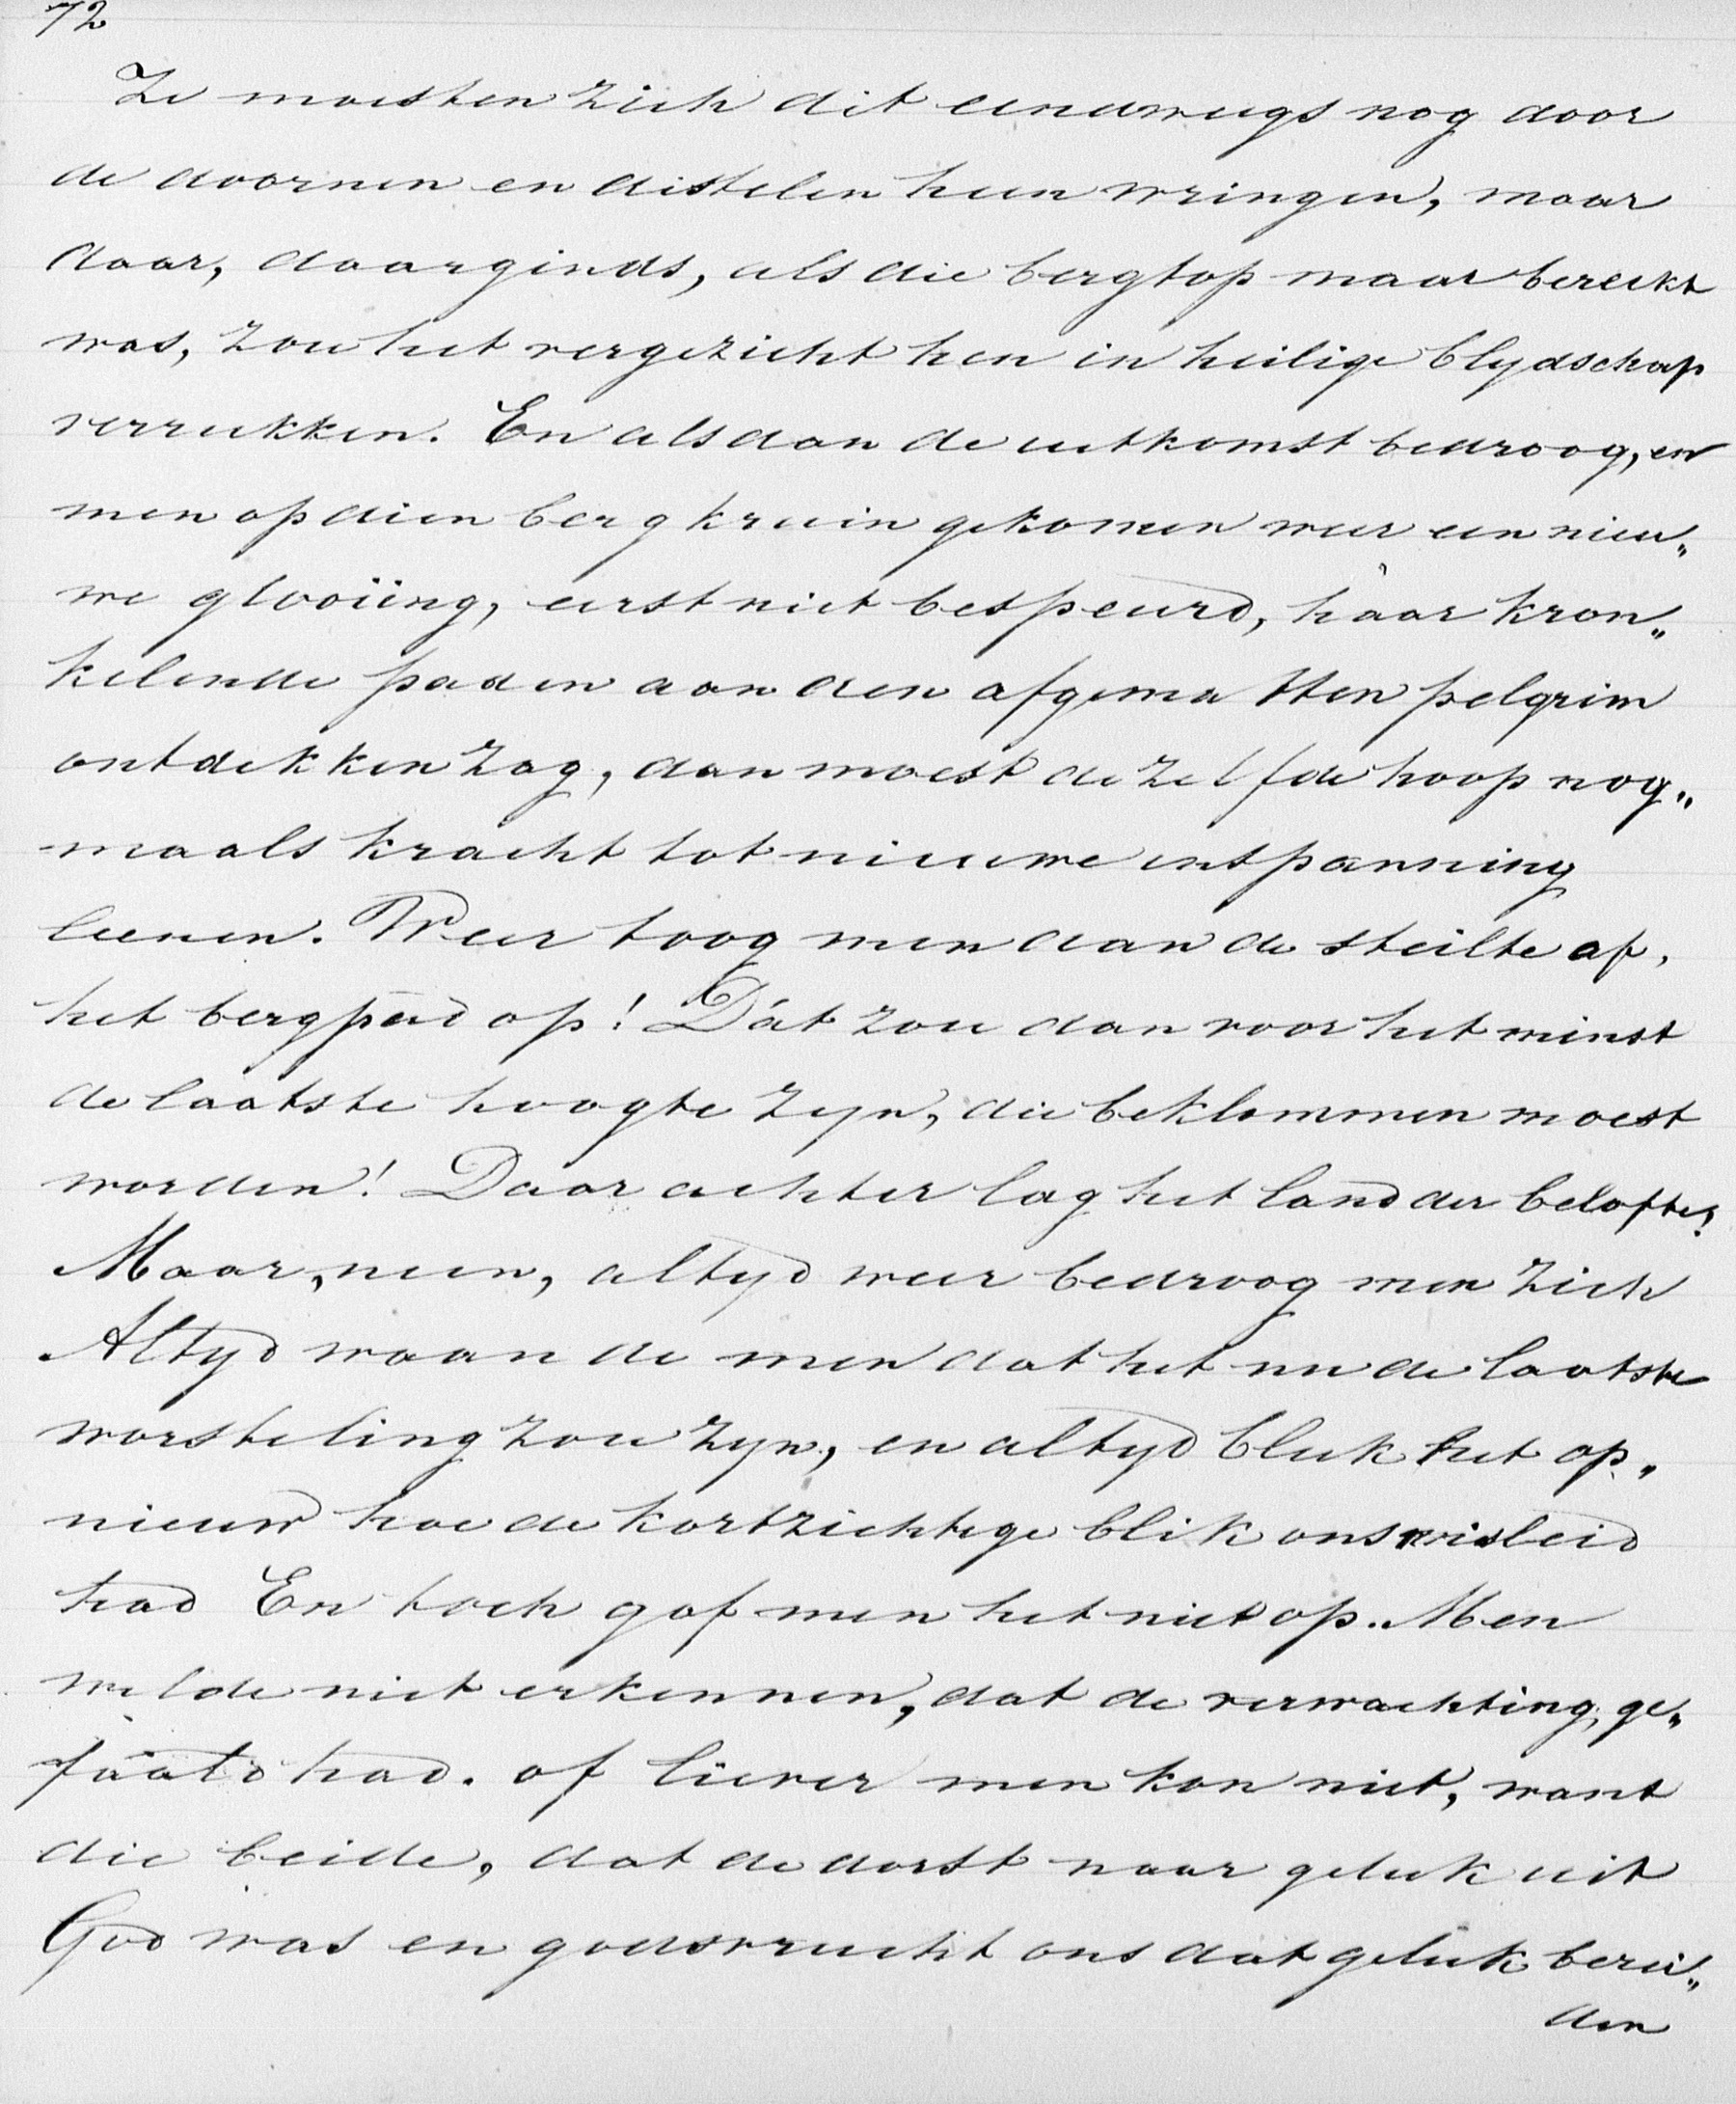 72
Ze moesten zich dit eenerwegs nog door
de doornen en distelen heen wringen, maar
daar, daarginds, als die bergtop maar bereikt
was, zou het vergezicht hen in heilige blydschap
verrukken. En als dan de uitkomst bedroog, en
men op dien bergkruin gekomen weer een nieu„
we glooiïng, eerst niet bespeurd, haar kron„
kelende paden aan den afgematten pelgrim
ontdekken zag, dan moest dezelfde hoop nog„
maals kracht tot nieuwe inspanning
leenen. Weer toog men dan de steilte af,
het bergpad op! Dát zou dan voor het minst
de laatste hoogte zyn, die beklommen moest
worden! Daar achter lag het land der belofte!
Maar, neen, altyd weer bedroog men zich
Altyd waande men dat het nu de laatste
worsteling zou zyn, en altyd bleek het op„
nieuw hoe de kortzichtige blik ons misleid
had En toch gaf men het niet op. Men
wilde niet erkennen, dat de verwachting ge„
faald had. of liever men kon niet, want
die beide, dat de dorst naar geluk uit
God was en godsvrucht ons dat geluk berei„
den